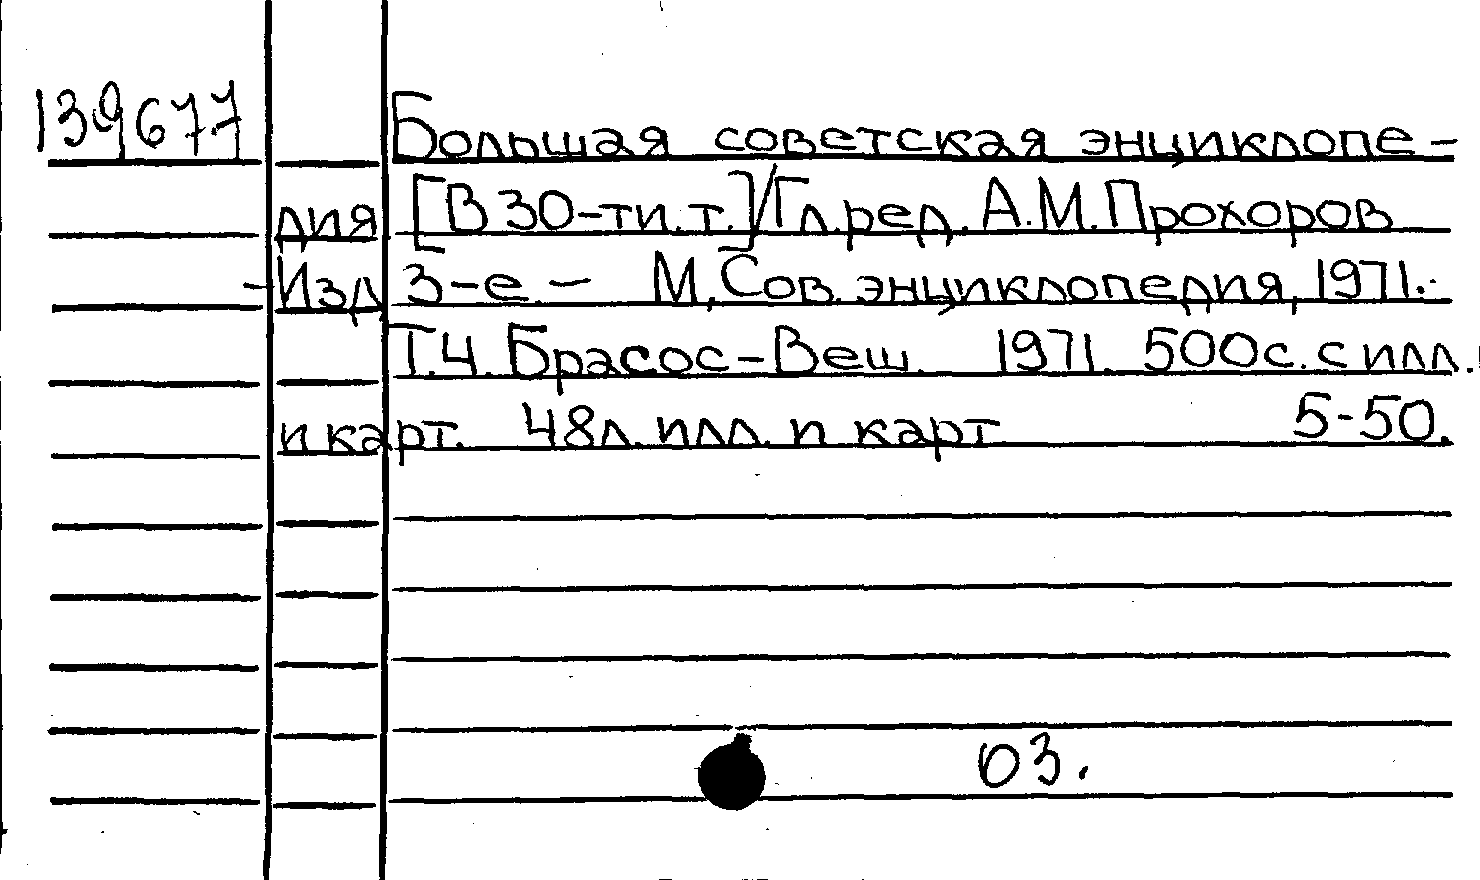 139677 Большая советская энциклопе-
дия [В 30-ти. т.]/Гл.ред. А.М.Прохоров
-Изд 3-е.- М,Сов. энциклопедия, 1971.-
Т.4. Брасос-Веш. 1971. 500с. с илл.
и карт. 48л. илл. и карт 5-50.
03.